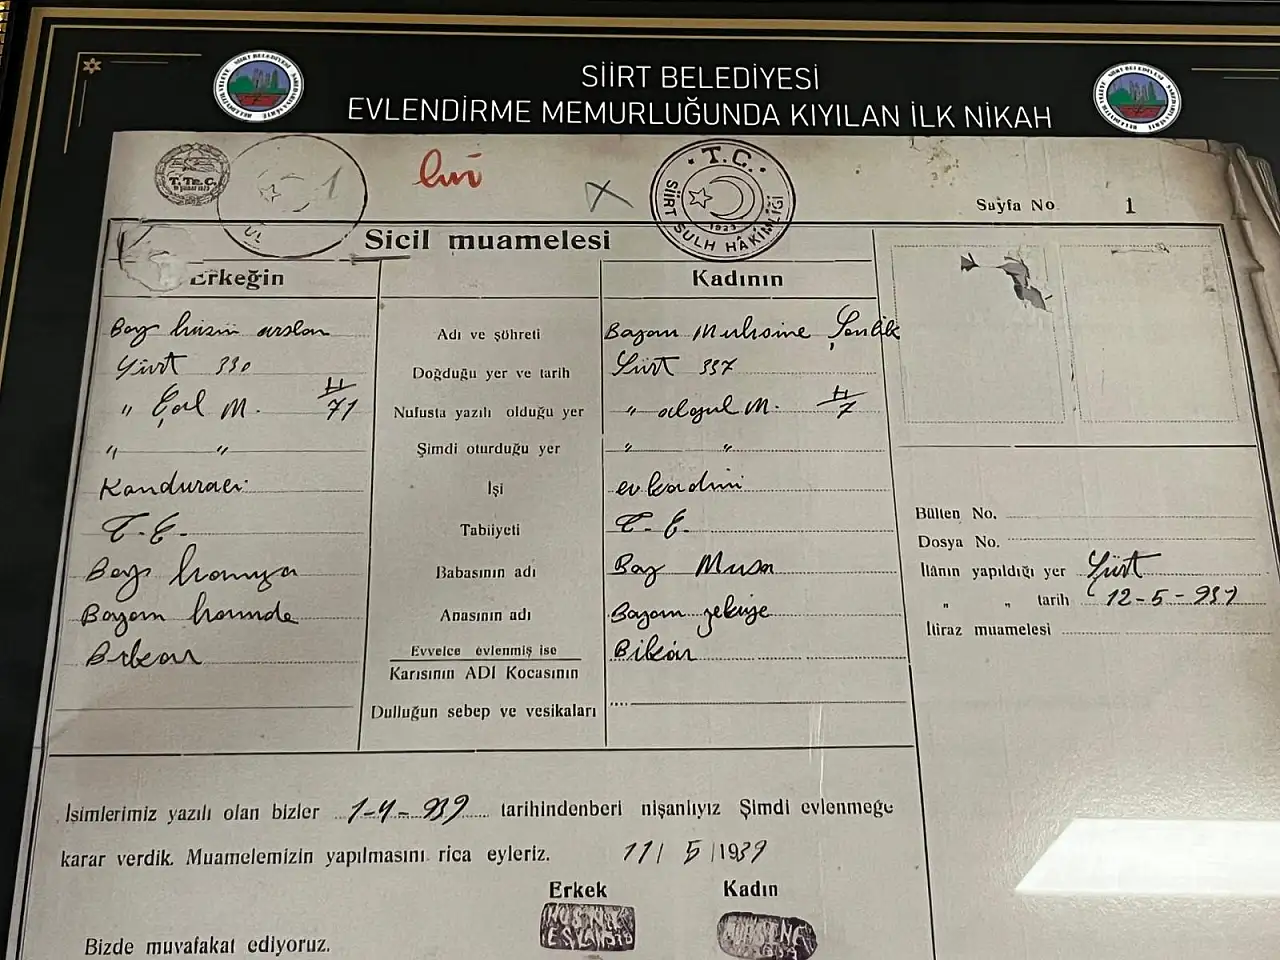 SİİRT BELEDİYESİ
EVLENDİRME MEMURLUĞUNDA KIYILAN İLK NİKAH
T.C.
SİİRT SULH HÂKİMLİĞİ
1923
Sayfa No 1
Sicil muamelesi
Erkeğin
Kadının
Bay arslan Adı ve şöhreti Bayan Muhsine Şenlik
Siirt 330 Doğduğu yer ve tarih Siirt 337
" M. 11/71 Nufusta yazılı olduğu yer " M. 11/7
" " Şimdi oturduğu yer " "
Kunduracı İşi ev kadını
T.C. Tabiiyeti T.C.
Bay hamza Babasının adı Bay Musa
Bayan hamide Anasının adı Bayan zekiye
Bikar Evvelce evlenmiş ise Bikar
Karısının ADI Kocasının
Dulluğun sebep ve vesikaları
Bülten No.
Dosya No.
İlânın yapıldığı yer Siirt
" " tarih 12-5-939
İtiraz muamelesi
İsimlerimiz yazılı olan bizler 1-4-939 tarihindenberi nişanlıyız Şimdi evlenmeğe
karar verdik. Muamelemizin yapılmasını rica eyleriz. 11/5/1939
Erkek Kadın
Bizde muvafakat ediyoruz.